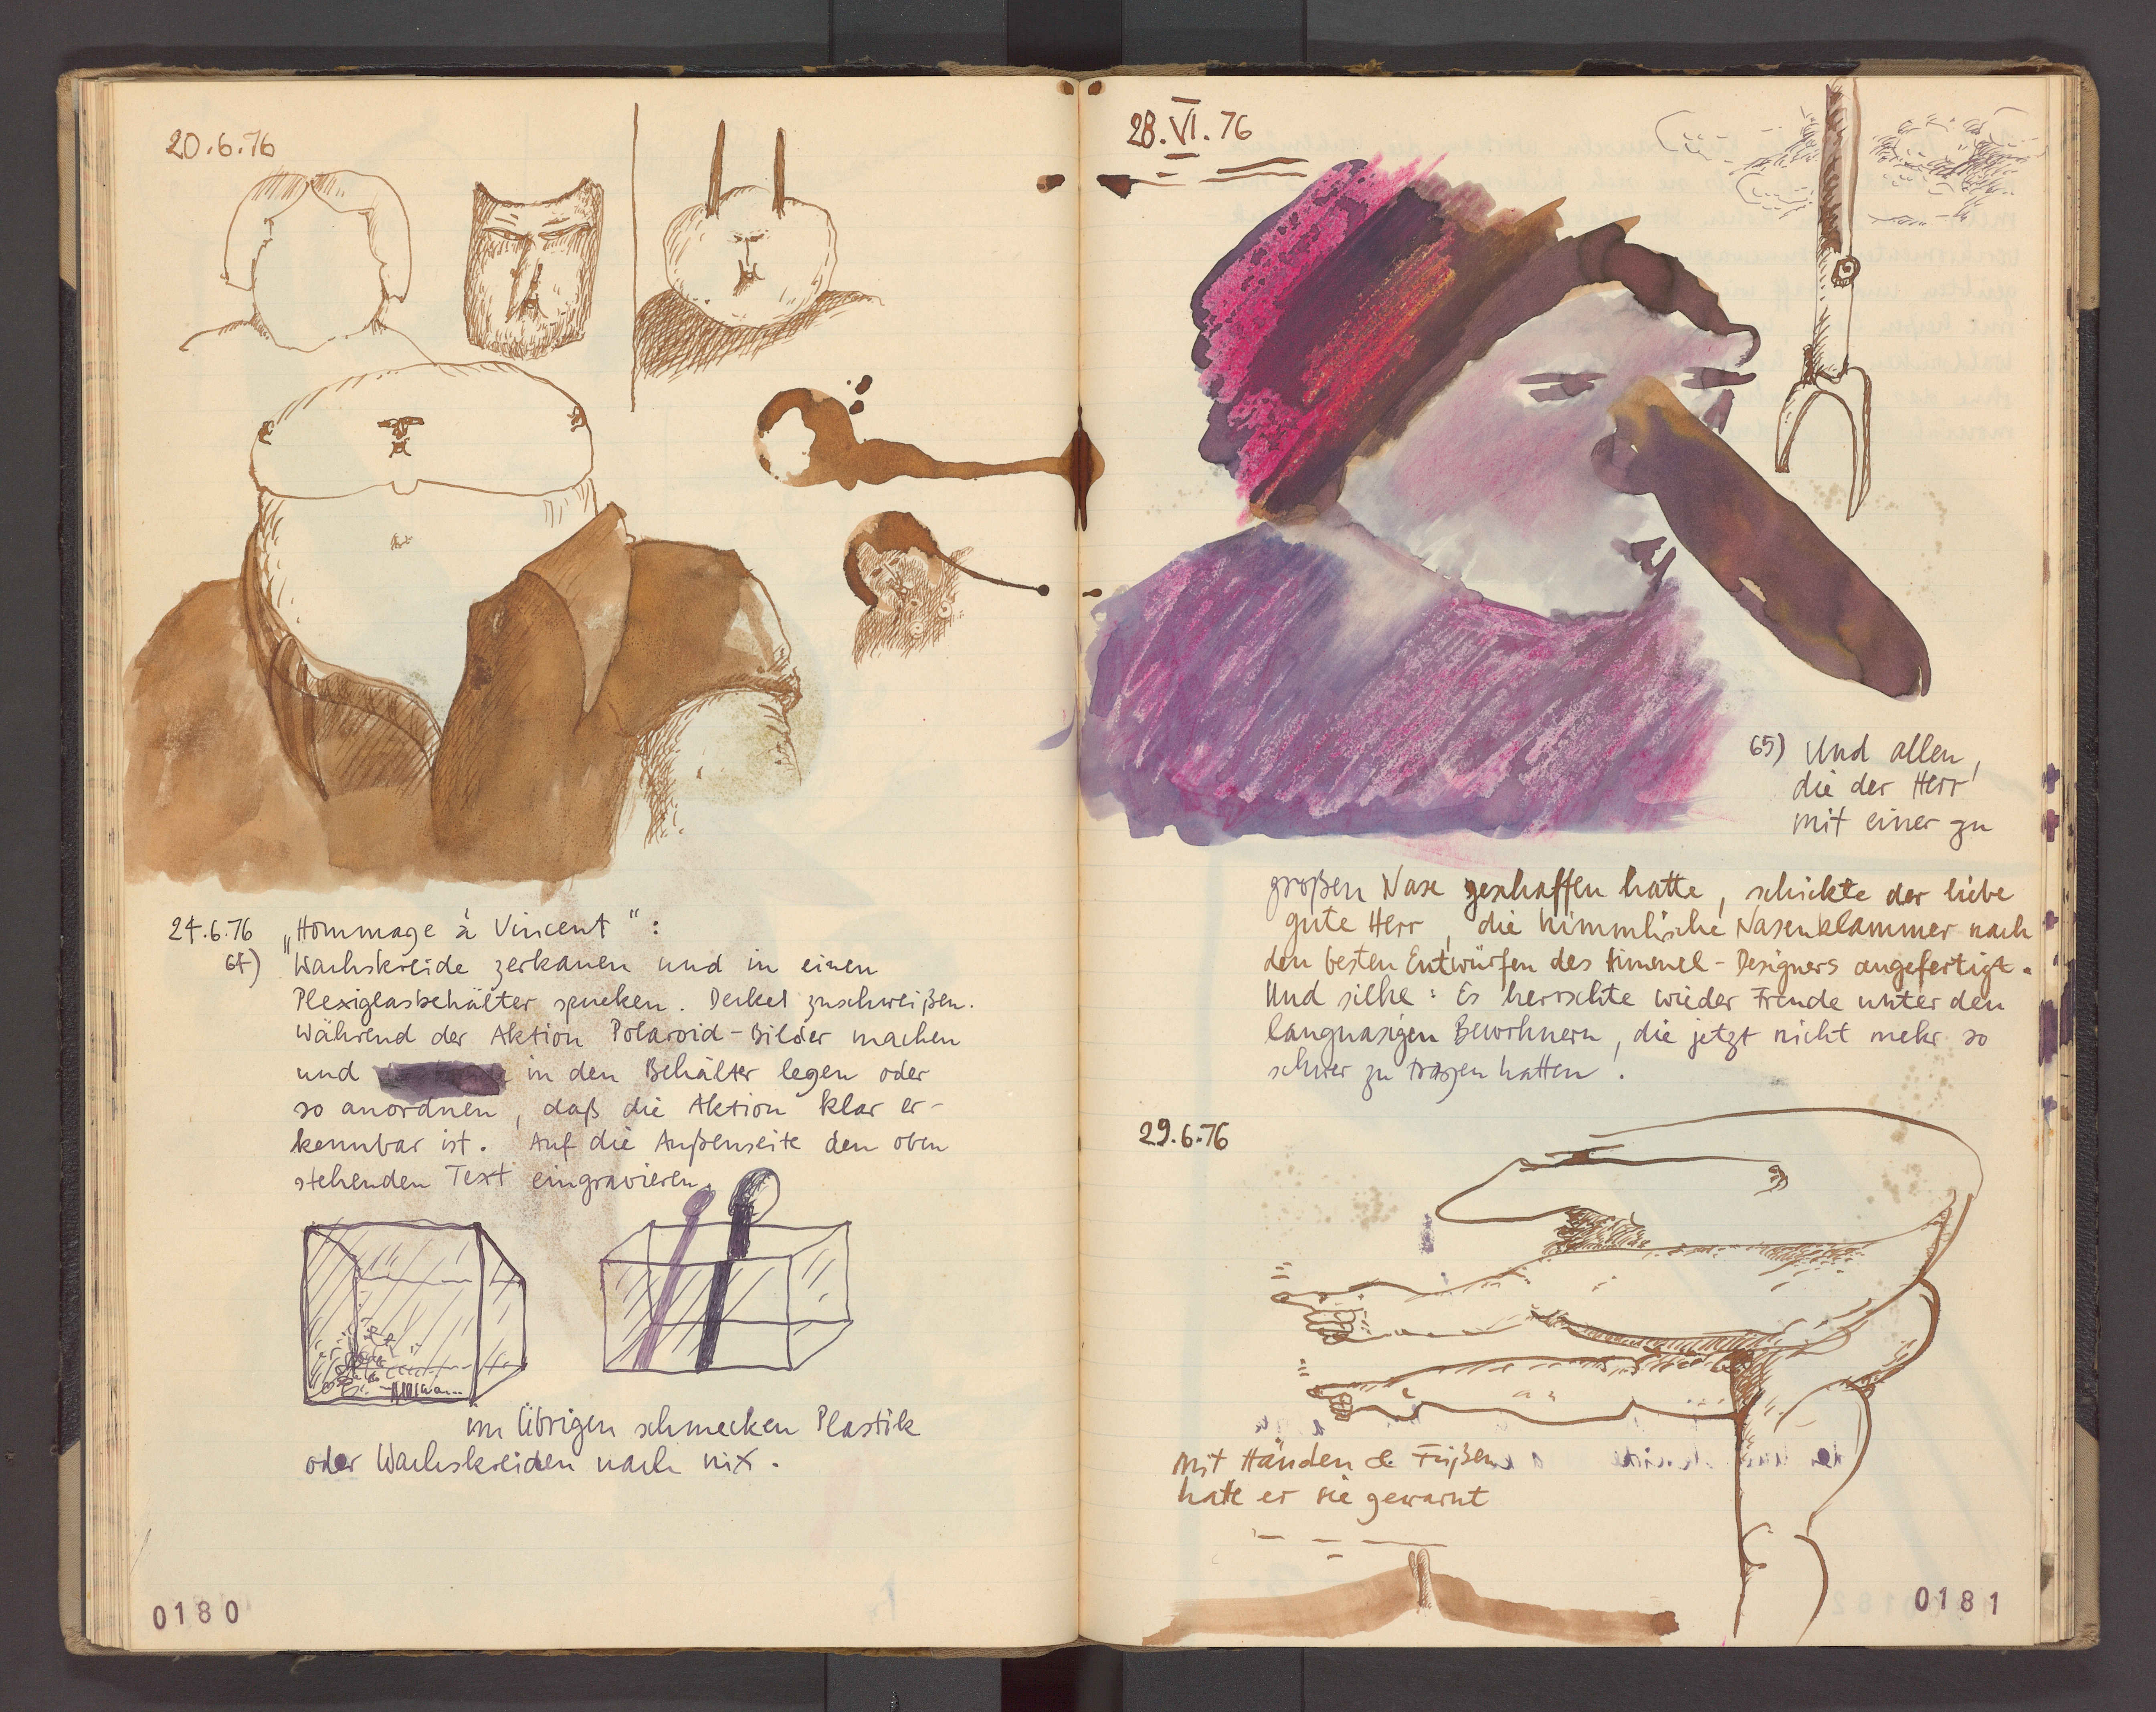 20.6.76
24.6.76 „Hommage à Vincent“:
64) Wachskreide zerkauen und in einen
Plexiglasbehälter spucken. Deckel zuschweißen.
Während der Aktion Polaroid-Bilder machen
und in den Behälter legen oder
so anordnen, daß die Aktion klar er-
kennbar ist. Auf die Außenseite den oben
stehenden Text eingravieren.
im Übrigen schmecken Plastik
oder Wachskreiden nach nix.
0180
28.VI.76
65) Und allen,
die der Herr
mit einer zu
großen Nase geschaffen hatte, schickte der liebe
gute Herr, die himmlische Nasenklammer nach
den besten Entwürfen des Himmel-Designers angefertigt.
Und siehe: Es herrschte wieder Freude unter den
langnasigen Bewohnern, die jetzt nicht mehr so
schwer zu tragen hatten!
29.6.76
Mit Händen & Füßen
hatte er sie gewarnt
0181